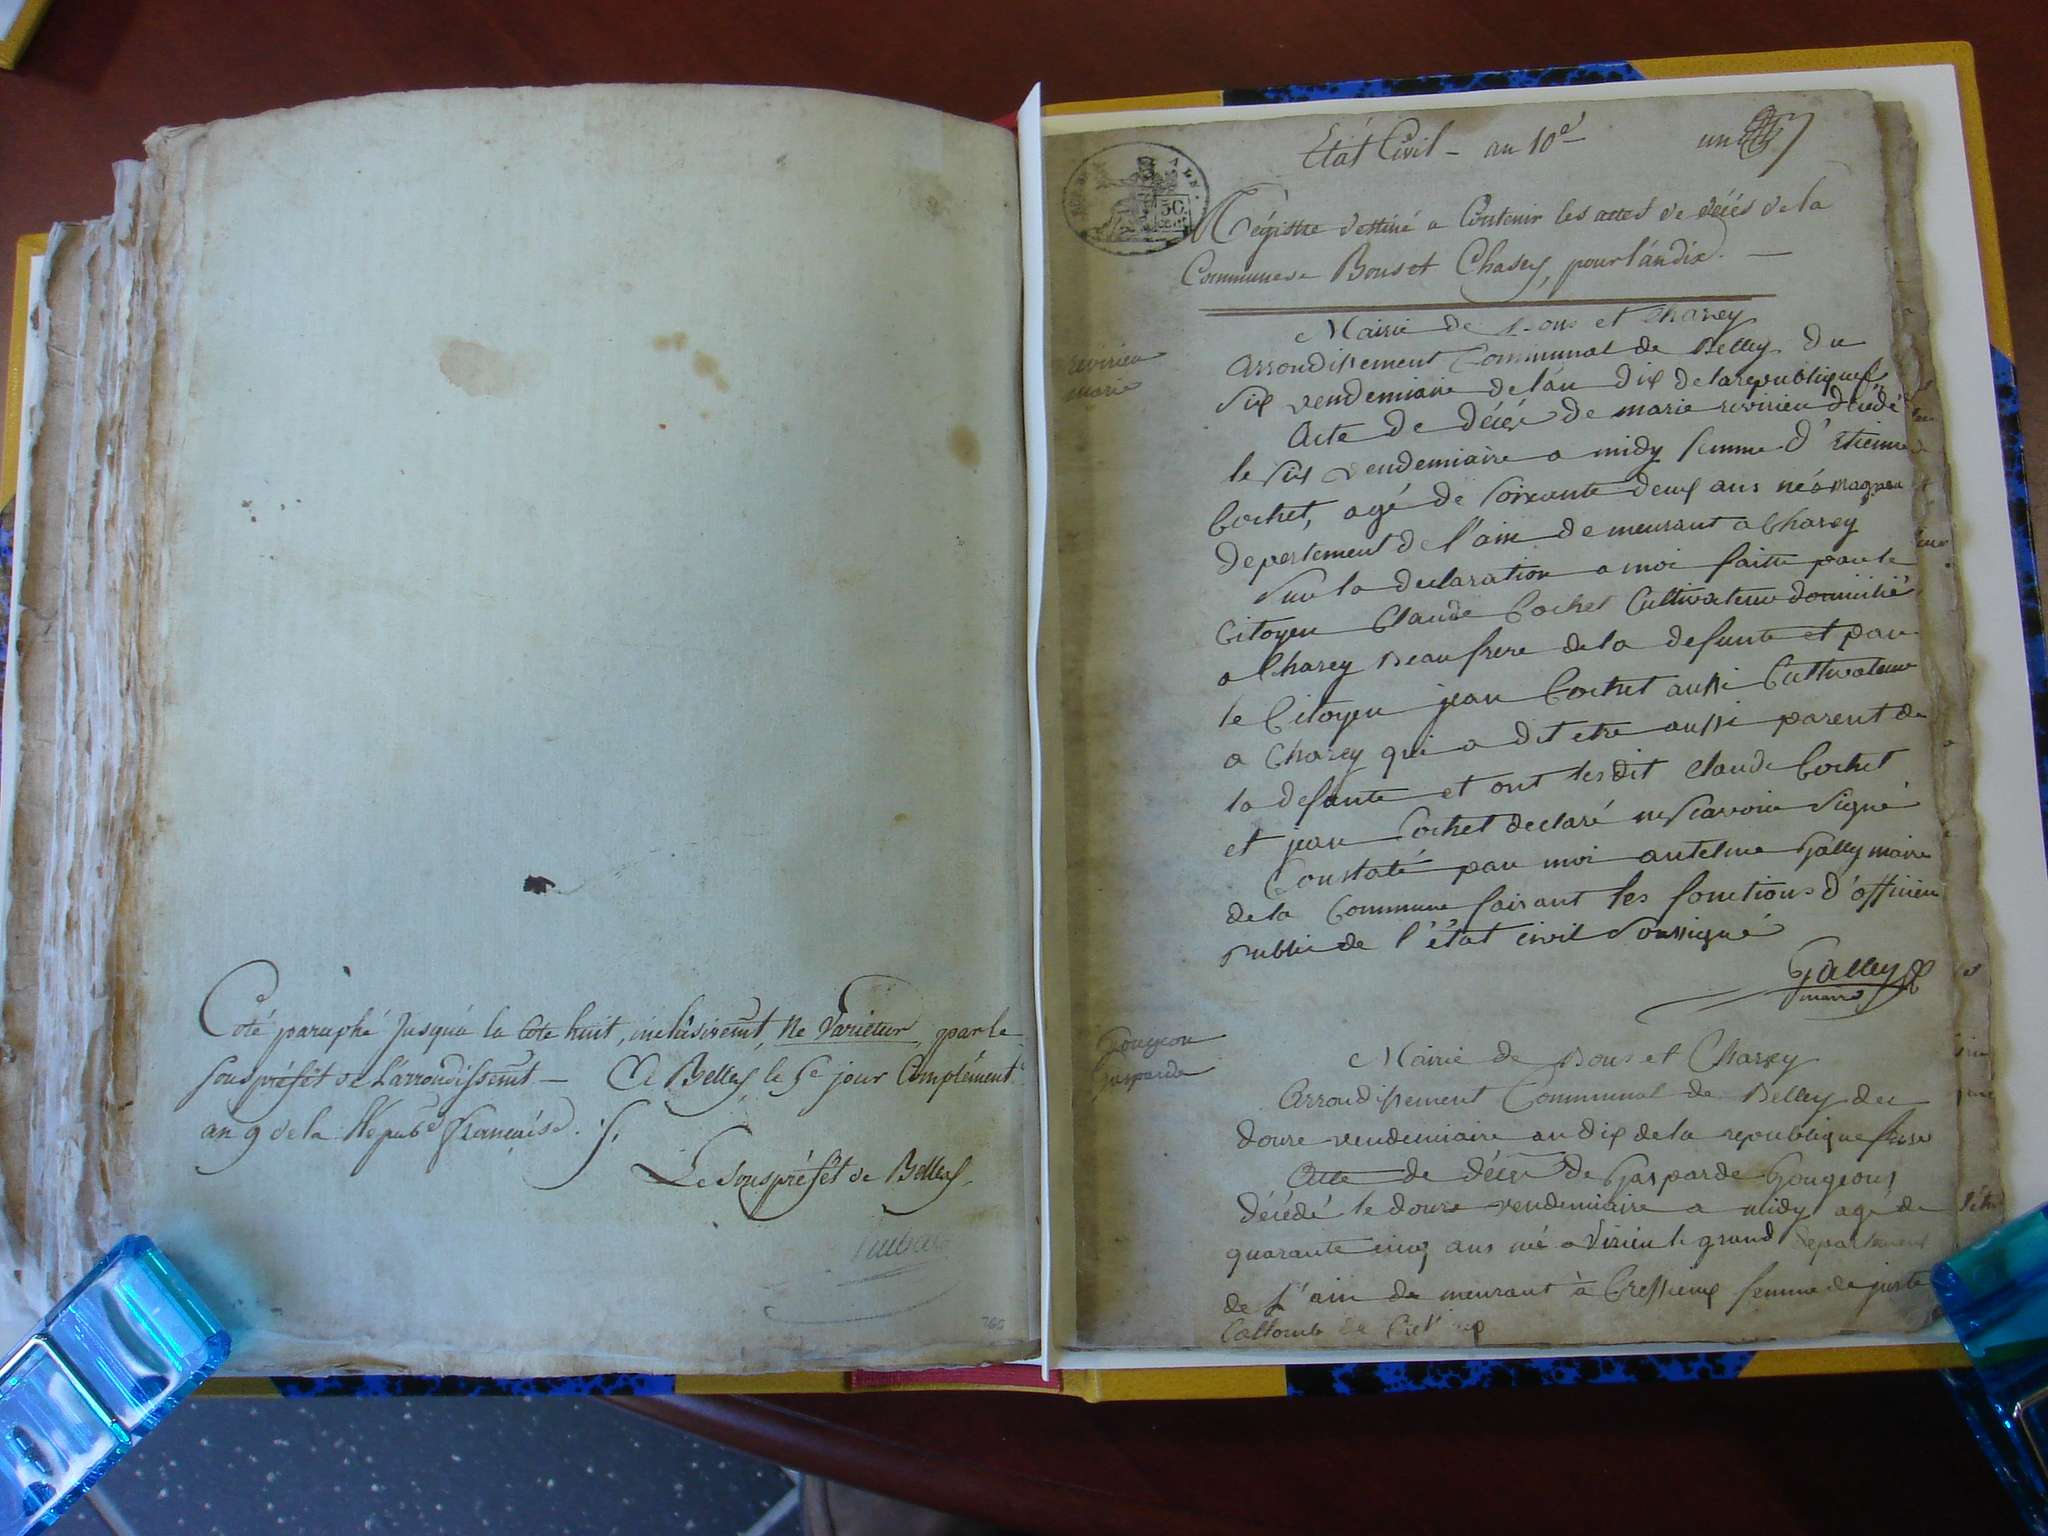 Coté paraphé Jusqu'a la Cote huit, inclusivemt, Ne Varietur, par le
souspréfêt de L'arrondissemt — A Belley le 5e jour Complément.
an 9 de la Repube française. /.
Le souspréfêt de Belley,
265
Etat Civil - au 10e
un
Régistre destiné a Contenir les actes de décés de la
Commune de Bons et Chasey, pour l'an dix. —
Mairie de Bons et Chasey
revirieu
marie
Arrondissement Communal de Belley du
six vendemiaire de l'an dix de la republique
Acte de décés de marie revirieu décédé
le six vendemiaire a midy femme d'Etienne
Cochet, agé de soixante deux ans né a
departement de l'ain demeurant a Chasey
sur la declaration a moi faitte par le
Citoyen Claude Cochet Cultivateur domicilié
a Chasey Beaufrere de la defunte et par
le Citoyen jean Cochet aussi Cultivateur
a Chasey qui a dit etre aussi parent de
la defunte et ont lesdit Claude Cochet
et jean Cochet declaré ne scavoir signé
Constaté par moi antelme Gally maire
de la Commune faisant les fonctions d'officier
public de l'état civil soussigné
Galley
maire
Gougeon
Gasparde
Mairie de Bons et Chasey
Arrondissement Communal de Belley du
douze vendemiaire an dix de la republique
Acte de décés de Gasparde Gougeon
décédé le douze vendemiaire a midy agé de
quarante cinq ans né a Virieu le grand departement
de L'ain demeurant à Cressieux femme de juste